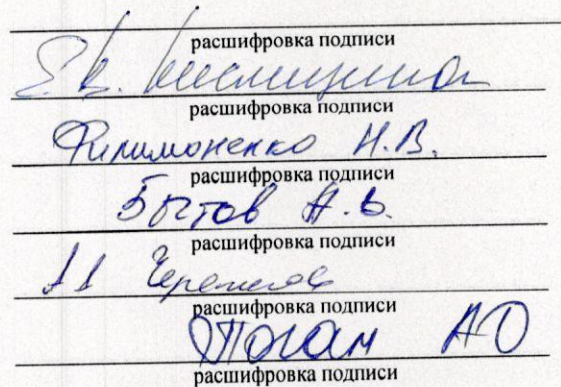 расшифровка подписи
Е.В.
расшифровка подписи
Филимоненко Н.В.
расшифровка подписи
Бытов А.В.
расшифровка подписи
расшифровка подписи
АО
расшифровка подписи